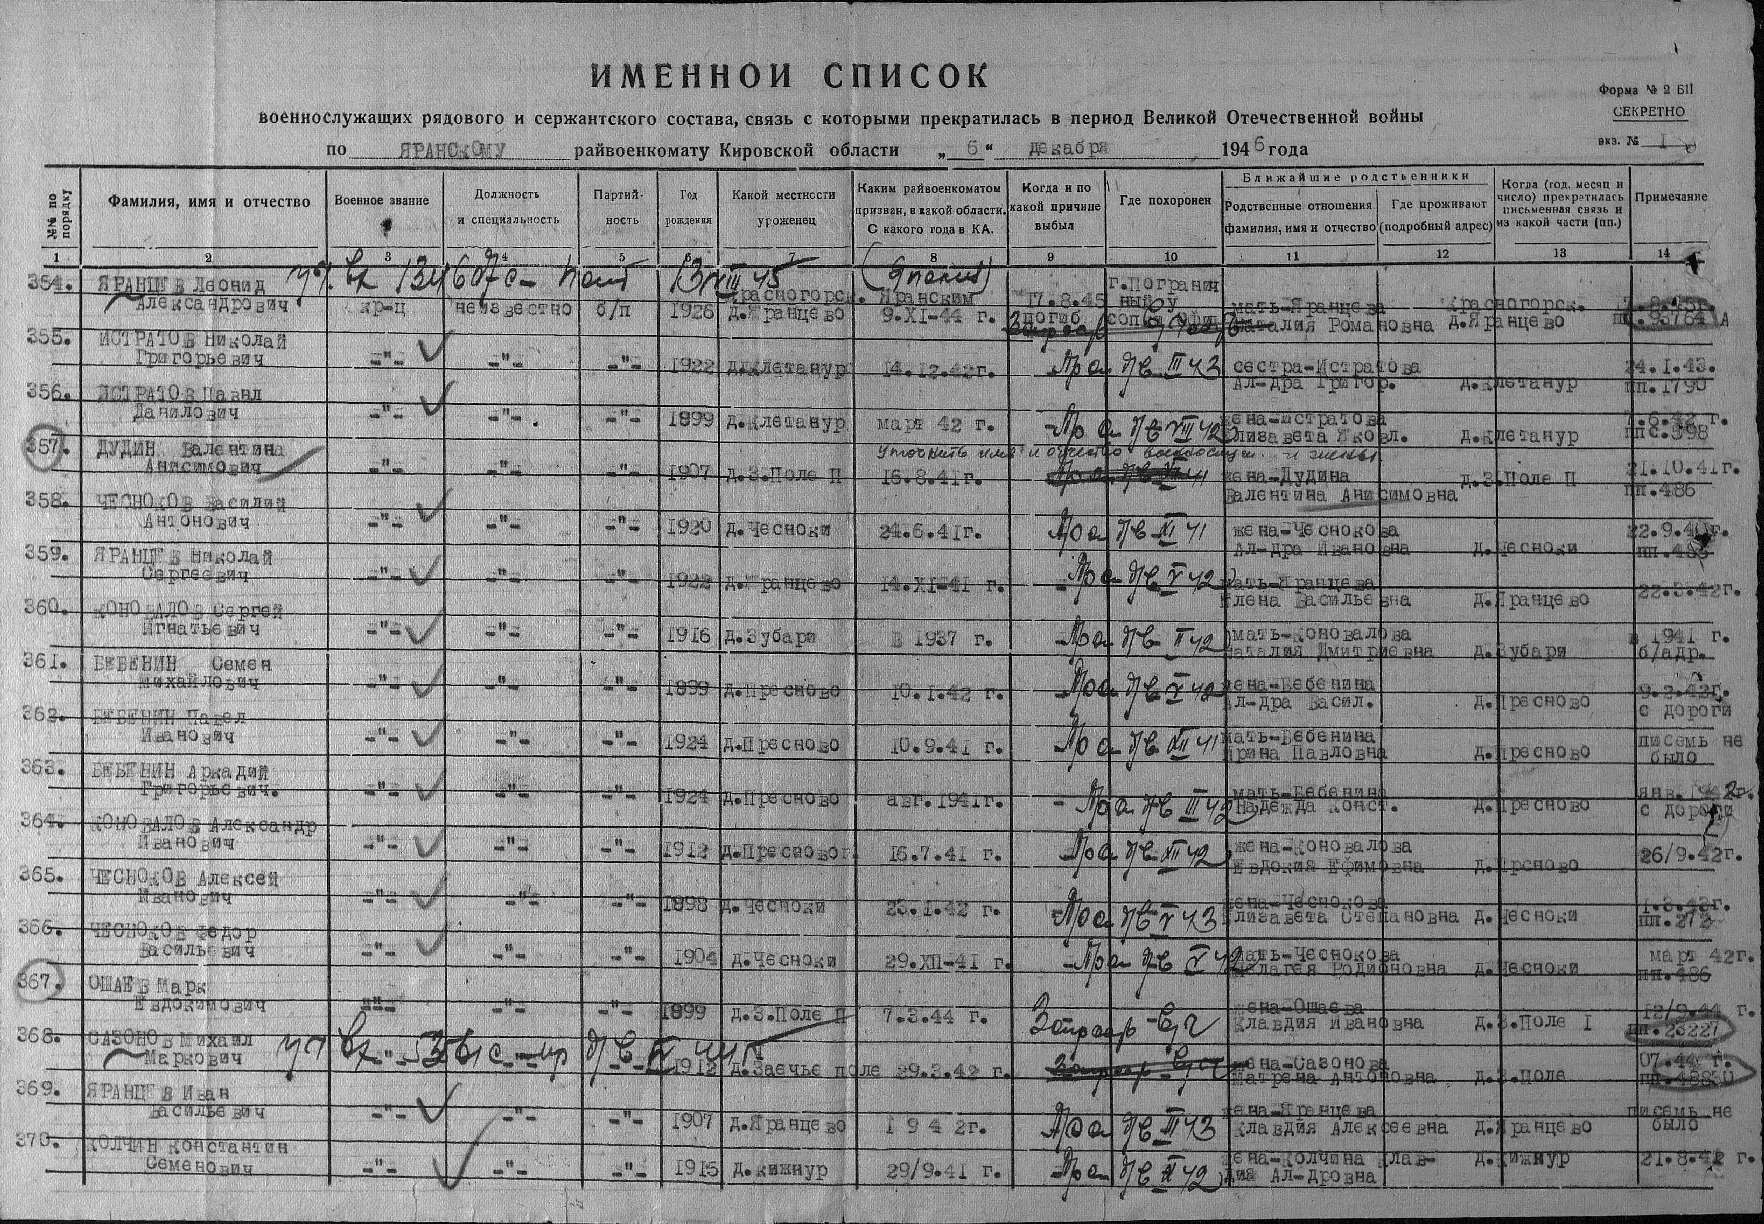 ИМЕННОЙ СПИСОК
Форма № 2 БП
военнослужащих рядового и сержантского состава, связь с которыми прекратилась в период Великой Отечественной войны
СЕКРЕТНО
по ЯРАНСКОМУ райвоенкомату Кировской области „6“ декабря 1946 года
экз. № 1
№№ по порядку Фамилия, имя и отчество Военное звание Должность и специальность Партийность Год рождения Какой местности уроженец Каким райвоенкоматом призван, в какой области. С какого года в КА. Когда и по какой причине выбыл Где похоронен Ближайшие родственники Родственные отношения фамилия, имя и отчество Где проживают (подробный адрес) Когда (год, месяц и число) прекратилась письменная связь и из какой части (пп.) Примечание
1 2 3 4 5 6 7 8 9 10 11 12 13 14
354. ЯРАНЦЕВ Леонид г.Погранич
Александрович кр-ц неизвестно б/п 1926 Красногорск. д.Яранцево Яранским 9.XI-44 г. 17.8.45 погиб ный у сопки мать-Яранцева Наталия Романовна Красногорск. д.Яранцево
355. ИСТРАТОВ Николай
Григорьевич -"- -"- -"- 1922 д.Клетанур 14.12.42г. Пр а пв III 43 сестра-Истратова Ал-дра Григор. д.Клетанур 24.1.43. пп.1790
356. ИСТРАТОВ Павел
Данилович -"- -"- -"- 1899 д.Клетанур март 42 г. Пр а пв VIII 42 жена-Истратова Елизавета Яковл. д.Клетанур пс.398
357. ДУДИН Валентина Уточнить имя и отчество военнослуж. и жены
Анисимович -"- -"- -"- 1907 д.З.Поле П 16.8.41г. жена-Дудина Валентина Анисимовна д.З.Поле П 21.10.41г. пп.486
358. ЧЕСНОКОВ Василий
Антонович -"- -"- -"- 1920 д.Чесноки 24.6.41г. Пр а пв XI 41 жена-Чеснокова Ал-дра Ивановна д.Чесноки 22.9.41г.
359. ЯРАНЦЕВ Николай
Сергеевич -"- -"- -"- 1922 д.Яранцево 14.XI-41 г. Пр а пв V 42 мать-Яранцева Елена Васильевна д.Яранцево 22.3.42г.
360. КОНОВАЛОВ Сергей
Игнатьевич -"- -"- -"- 1916 д.Зубари В 1937 г. Пр а пв II 42 мать-Коновалова Наталия Дмитриевна д.Зубари в 1941 г. б/адр.
361. БЕБЕНИН Семен
Михайлович -"- -"- -"- 1899 д.Пресново 10.1.42 г. Пр а пв V 42 жена-Бебенина Ал-дра Васил. д.Пресново 9.2.42г. с дороги
362. БЕБЕНИН Павел
Иванович -"- -"- -"- 1924 д.Пресново 10.9.41 г. Пр а пв XII 41 мать-Бебенина Ирина Павловна д.Пресново писемь не было
363. БЕБЕНИН Аркадий
Григорьевич. -"- -"- -"- 1924 д.Пресново авг.1941г. - Пр а пв III 42 мать-Бебенина Надежда Конст. д.Пресново янв.1942г. с дороги
364. КОНОВАЛОВ Александр
Иванович -"- -"- -"- 1912 д.Пресново 16.7.41 г. Пр а пв XII 42 жена-Коновалова Евдокия Ефимовна д.Пресново 26/9.42г.
365. ЧЕСНОКОВ Алексей
Иванович -"- -"- -"- 1898 д.Чесноки 23.1.42 г. Пр а пв V 43 жена-Чеснокова Елизавета Степановна д.Чесноки пп.273
366. ЧЕСНОКОВ Федор
Васильевич -"- -"- -"- 1904 д.Чесноки 29.XII-41 г. Пр а пв V 42 мать-Чеснокова Пелагея Родионовна д.Чесноки март 42г. пп.486
367. ОШАЕВ Марк
Евдокимович -"- -"- -"- 1899 д.З.Поле П 7.3.44 г. жена-Ошаева Клавдия Ивановна д.З.Поле I 12/9.44 г. пп.23227
368. САЗОНОВ Михаил
Маркович -"- 1912 д.Заечье поле 29.3.42 г. жена-Сазонова Матрена Антоновна д.З.Поле 07.44 г.
369. ЯРАНЦЕВ Иван
Васильевич -"- -"- -"- 1907 д.Яранцево 1942г. Пр а пв III 43 жена-Яранцева Клавдия Алексеевна д.Яранцево писемь не было
370. КОЛЧИН Константин
Семенович -"- -"- -"- 1915 д.Кижнур 29/9.41 г. Пр а пв XI 42 жена-Колчина Клавдия Ал-дровна д.Кижнур 21.8.42 г.